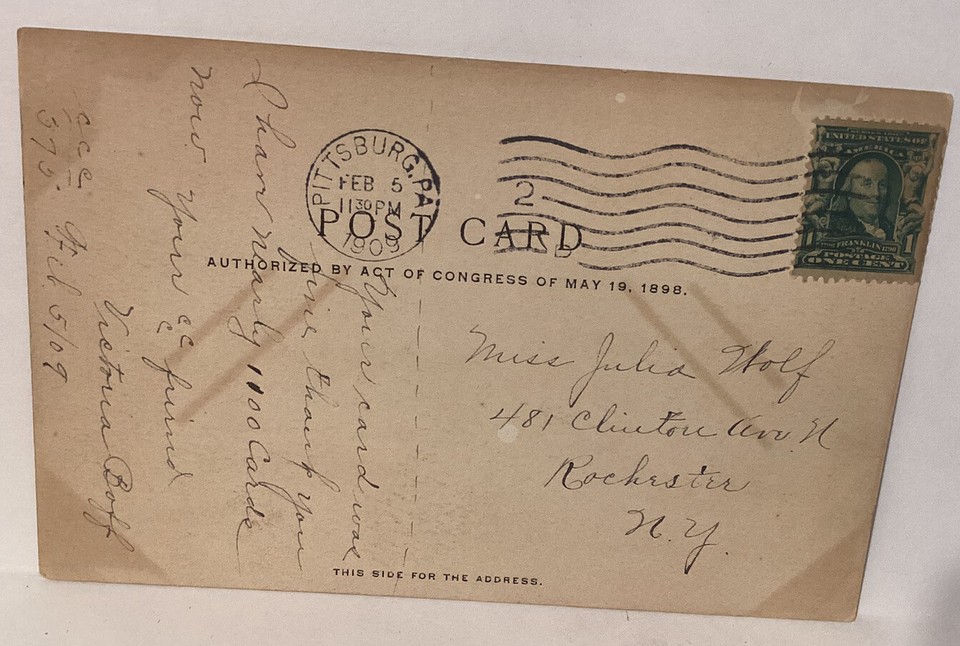 PITTSBURG, PA
FEB 5
11 30 PM
1909
2
UNITED STATES OF
AMERICA
1 FRANKLIN 1
POSTAGE
ONE CENT
POST CARD
AUTHORIZED BY ACT OF CONGRESS OF MAY 19, 1898.
Your card was
fine thank you
I have nearly 1100 Cards
now. Yours cc friend
Victoria Boff
ccc
375. Feb 5/09
Miss Julia Wolf
481 Clinton Ave N
Rochester
N.Y.
THIS SIDE FOR THE ADDRESS.